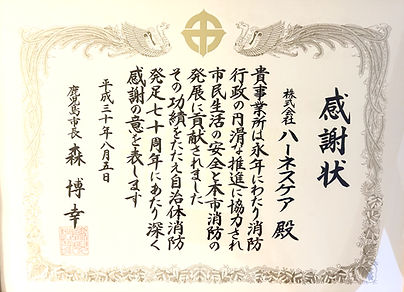 感謝状
株式会社
ハーネスケア 殿
貴事業所は永年にわたり消防
行政の円滑な推進に協力され
市民生活の安全と本市消防の
発展に貢献されました
その功績をたたえ自治体消防
発足七十周年にあたり深く
感謝の意を表します
平成三十年八月五日
鹿児島市長 森 博幸